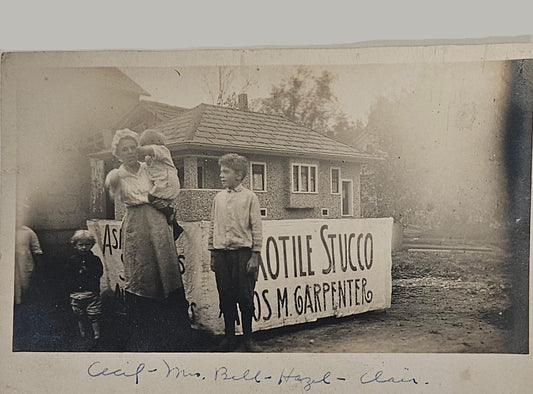 ASB
OTILE STUCCO
OS M. CARPENTER
Cecil - Mrs. Bell - Hazel - Clair.